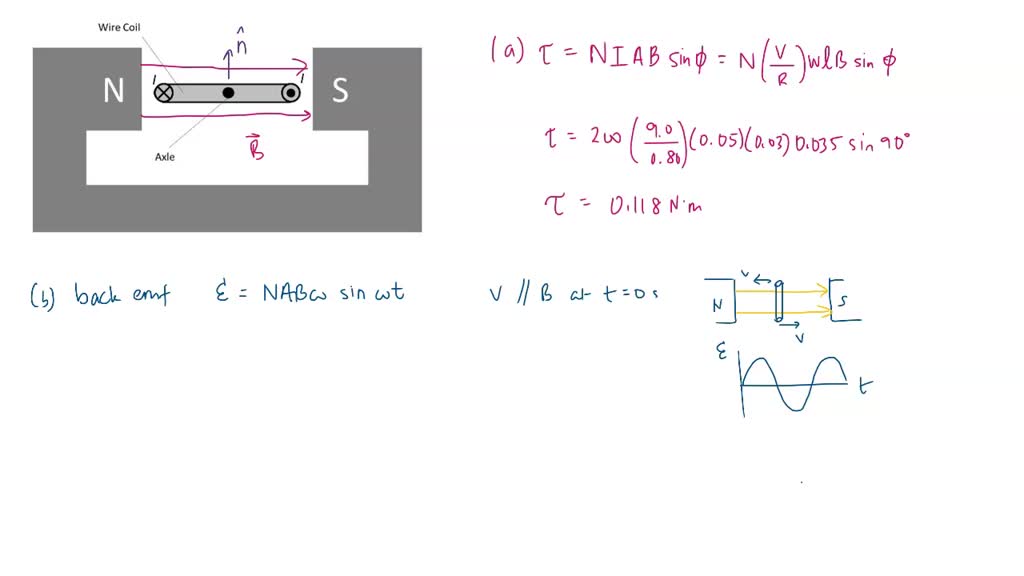 Wire Coil
n̂
N
S
Axle
B⃗
(a) τ = NIAB sin ϕ = N(V/R)wlB sin ϕ
τ = 200 (9.0/0.80)(0.05)(0.03)0.035 sin 90°
τ = 0.118 N·m
(b) back emf ℰ = NABω sin ωt
v // B at t=0 s
v
N
S
v
ℰ
t